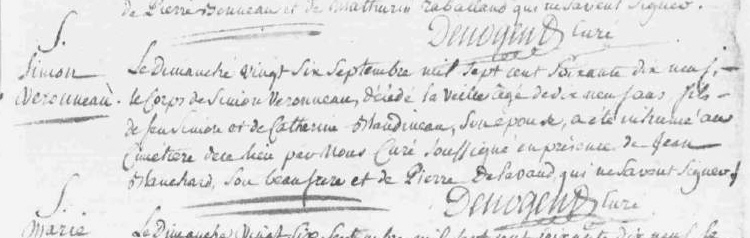 de Pierre Bonneau et de Mathurin Raballand qui ne savent signer.
Denogent Curé
S.
Simon
Veronneau.
Le Dimanche vingt six Septembre mil sept cent soixante dix neuf,
le Corps de Simon Veronneau, décédé la veille agé de dix neuf ans fils
de feu Simon et de Catherine Blandineau, son épouse, a été inhumé au
Cimetière de ce lieu par Nous Curé soussigné en présence de Jean
Blanchard, son beau frere et de Pierre Delavaud qui ne savent signer
Denogent Curé
S.
Marie
Le Dimanche vingt six Septembre mil sept cent soixante dix neuf le